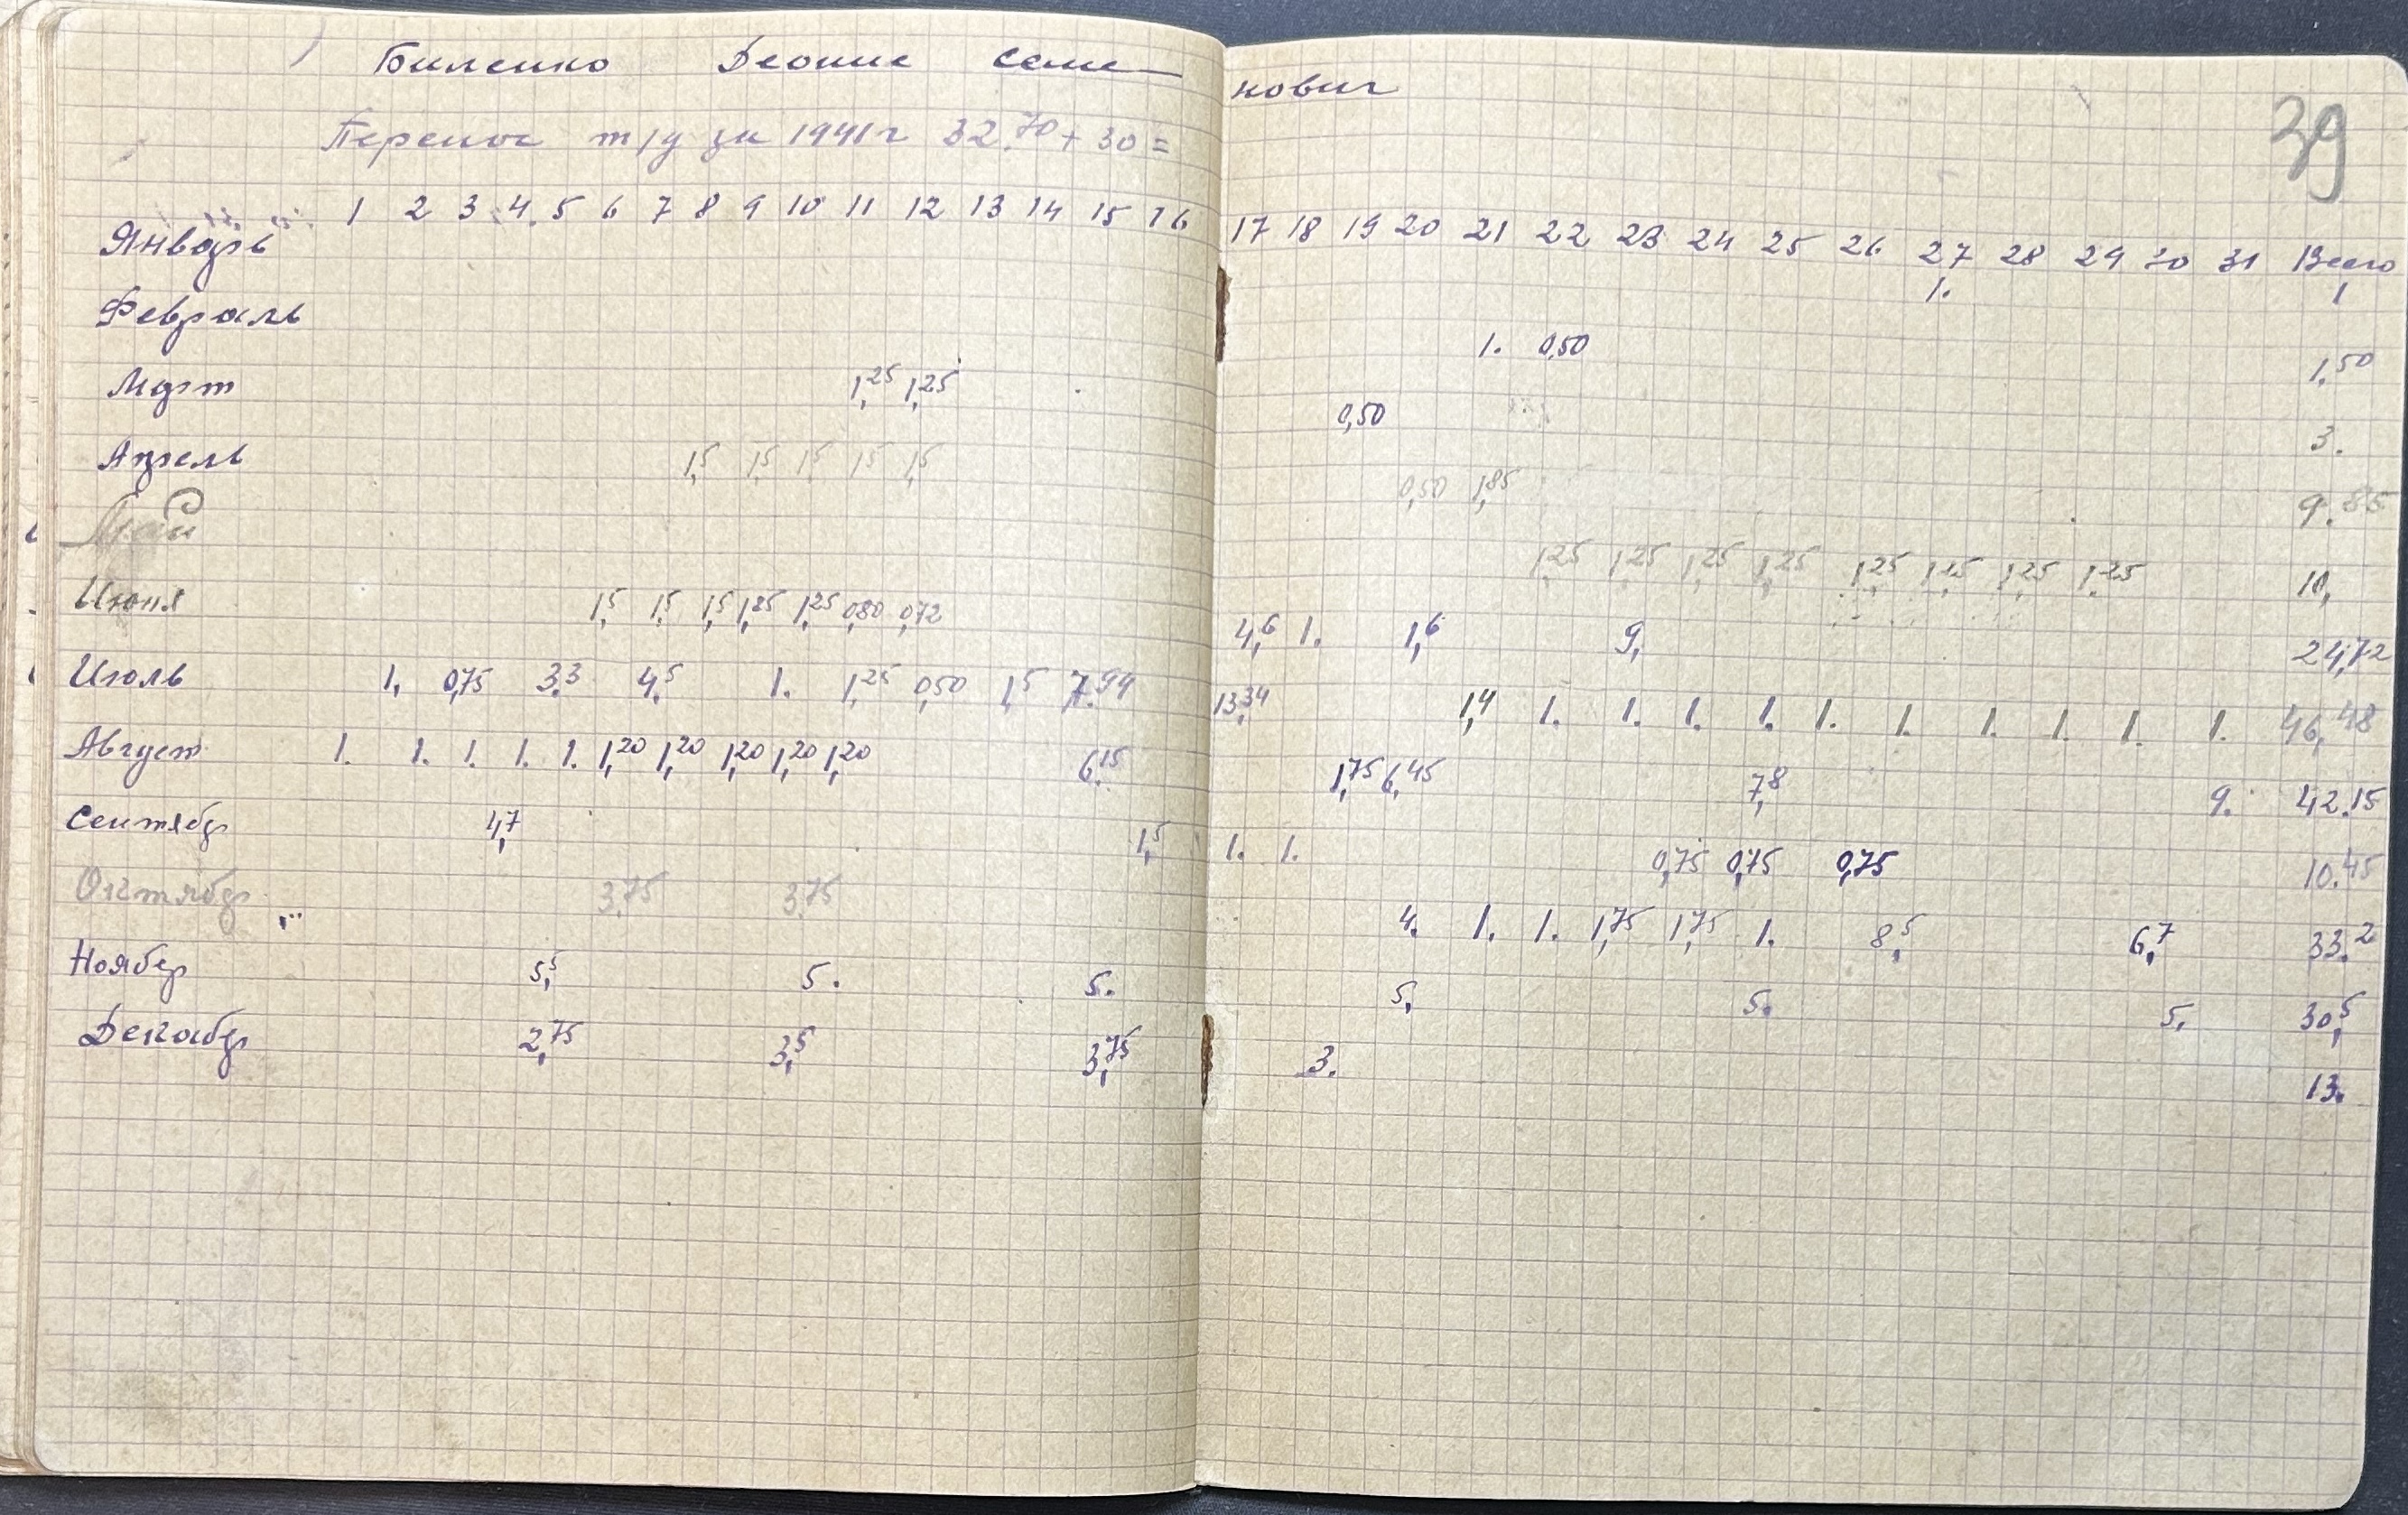 Биленко Деонис Семе-нович
39
Перенос т/д за 1941г 32.70 + 30 =
1 2 3 4 5 6 7 8 9 10 11 12 13 14 15 16 17 18 19 20 21 22 23 24 25 26 27 28 29 30 31 Всего
Январь 1. 1
Февраль 1. 0,50 1,50
Март 1,25 1,25 0,50 3.
Апрель 1,5 1,5 1,5 1,5 1,5 0,50 1,85 9.85
Май 1,25 1,25 1,25 1,25 1,25 1,25 1,25 1,25 10,
Июня 1,5 1,5 1,5 1,25 1,25 0,80 0,72 4,6 1. 1,6 9, 24,72
Июль 1, 0,75 3.3 4,5 1. 1,25 0,50 1,5 7.94 13,34 1,4 1. 1. 1. 1. 1. 1. 1. 1. 1. 1. 46,48
Август 1. 1. 1. 1. 1. 1,20 1,20 1,20 1,20 1,20 6,15 1,75 6,45 7,8 9. 42.15
Сентябр 4,7 1,5 1. 1. 0,75 0,75 0,75 10.45
Октябр 3.75 3.75 4. 1. 1. 1,75 1,75 1. 8,5 6,7 33.2
Ноябер 5,5 5. 5. 5, 5. 5, 30,5
Декабр 2,75 3,5 3,75 3. 13.